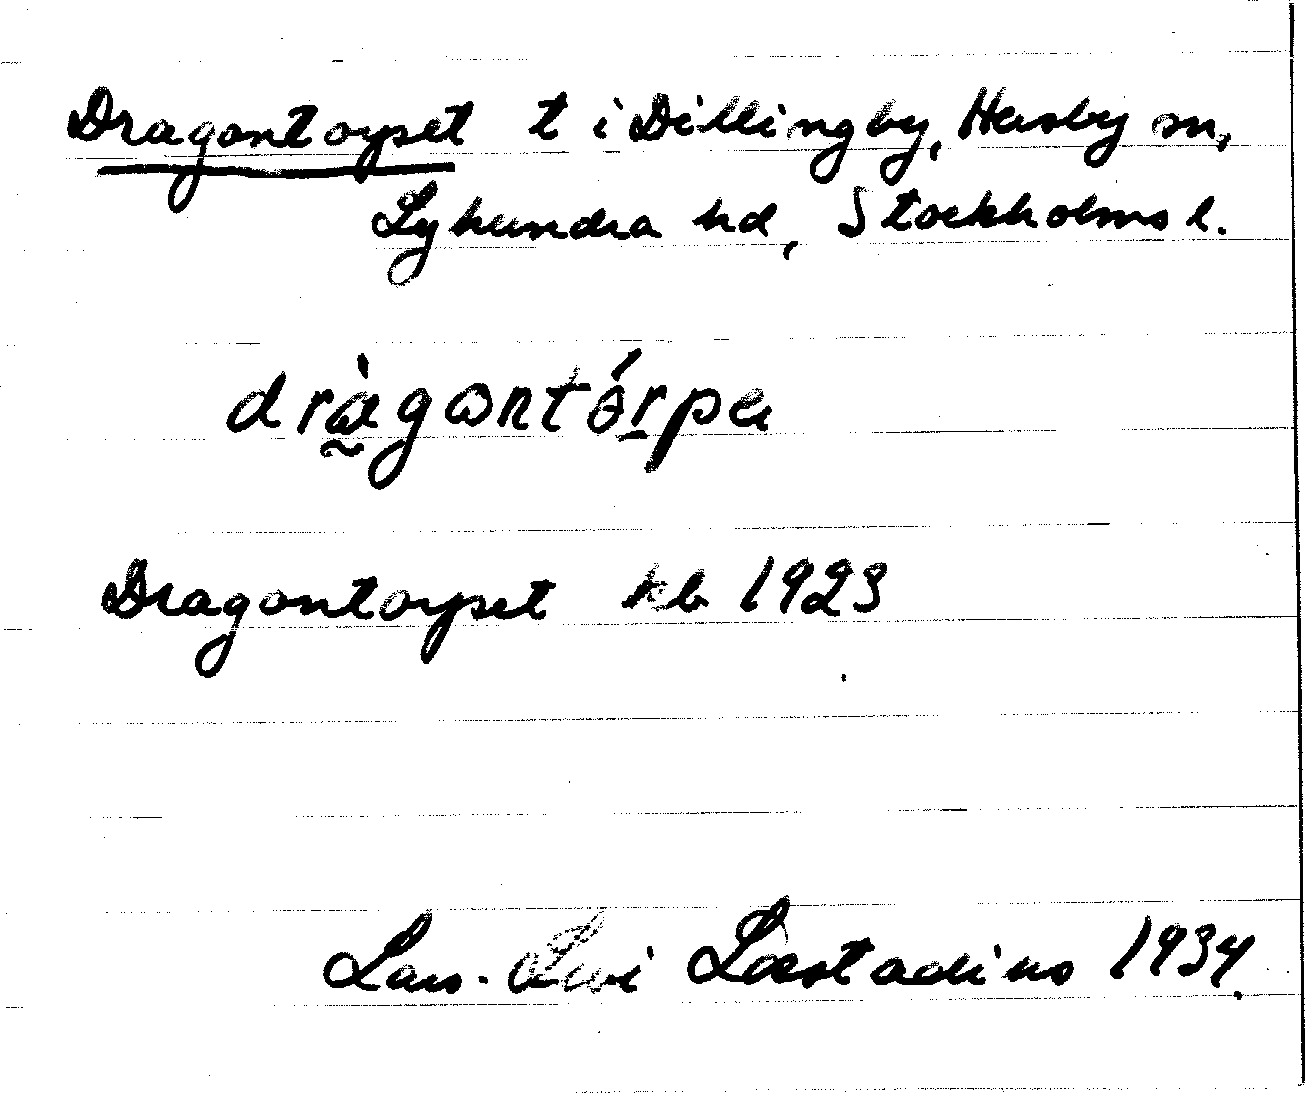 Dragontorpet t i Dillingby, Husby sn,
Lyhundra hd, Stockholms l.
dràgωntórpa
Dragontorpet kb 1923
Lars-Levi Læstadius 1934.